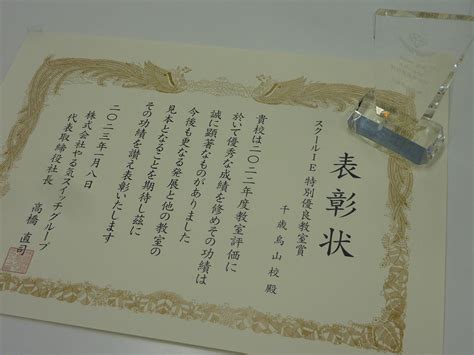 表彰状
スクールIE 特別優良教室賞
千歳烏山校 殿
貴校は二〇二二年度教室評価に
於いて優秀な成績を修めその功績は
誠に顕著なものがありました
今後も更なる発展と他の教室の
見本となることを期待し茲に
その功績を讃え表彰いたします
二〇二三年一月八日
株式会社やる気スイッチグループ
代表取締役社長 高橋 直司